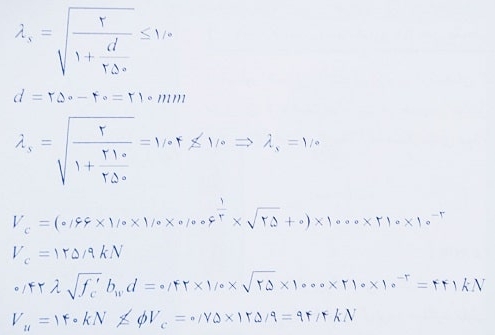 λₛ = √(۲ / (۱ + d/۲۵۰)) ≤ ۱/۰
d = ۲۵۰ − ۴۰ = ۲۱۰ mm
λₛ = √(۲ / (۱ + ۲۱۰/۲۵۰)) = ۱/۰۴ ≰ ۱/۰ ⇒ λₛ = ۱/۰
V_c = (۰/۶۶ × ۱/۰ × ۱/۰ × ۰/۰۰۶^(۱/۳) × √۲۵ + ۰) × ۱۰۰۰ × ۲۱۰ × ۱۰^−۳
V_c = ۱۲۵/۹ kN
۰/۴۲ λ √f′_c b_w d = ۰/۴۲ × ۱/۰ × √۲۵ × ۱۰۰۰ × ۲۱۰ × ۱۰^−۳ = ۴۴۱ kN
V_u = ۱۴۰ kN ≰ ϕV_c = ۰/۷۵ × ۱۲۵/۹ = ۹۴/۴ kN